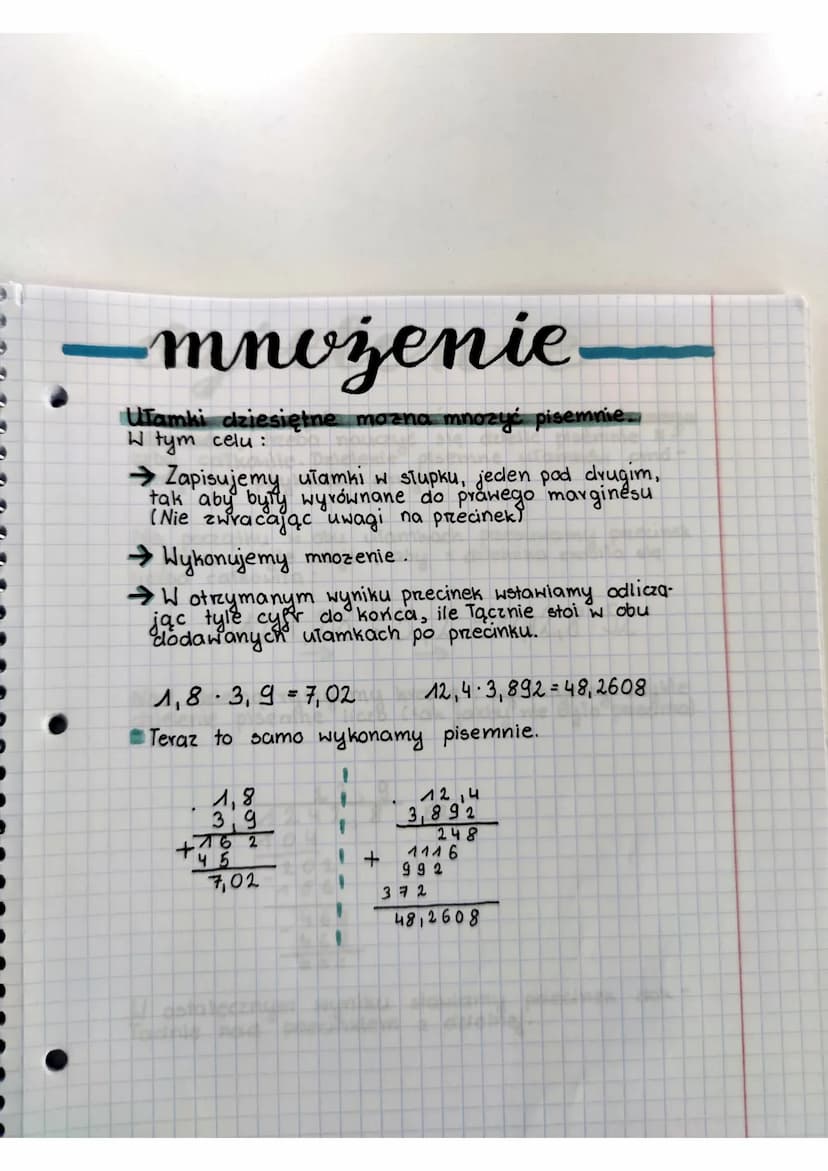 mnożenie
Ułamki dziesiętne mozna mnozyć pisemnie.
W tym celu:
→ Zapisujemy ułamki w słupku, jeden pod drugim,
tak aby były wyrównane do prawego marginesu
(Nie zwracając uwagi na przecinek)
→ Wykonujemy mnozenie.
→ W otrzymanym wyniku przecinek wstawiamy odlicza-
jąc tyle cyfr do końca, ile łącznie stoi w obu
dodawanych ułamkach po przecinku.
1,8 · 3,9 = 7,02 12,4 · 3,892 = 48,2608
Teraz to samo wykonamy pisemnie.
· 1,8
3,9
+ 16 2
4 5
7,02
· 12,4
3,892
248
+ 1116
992
372
48,2608